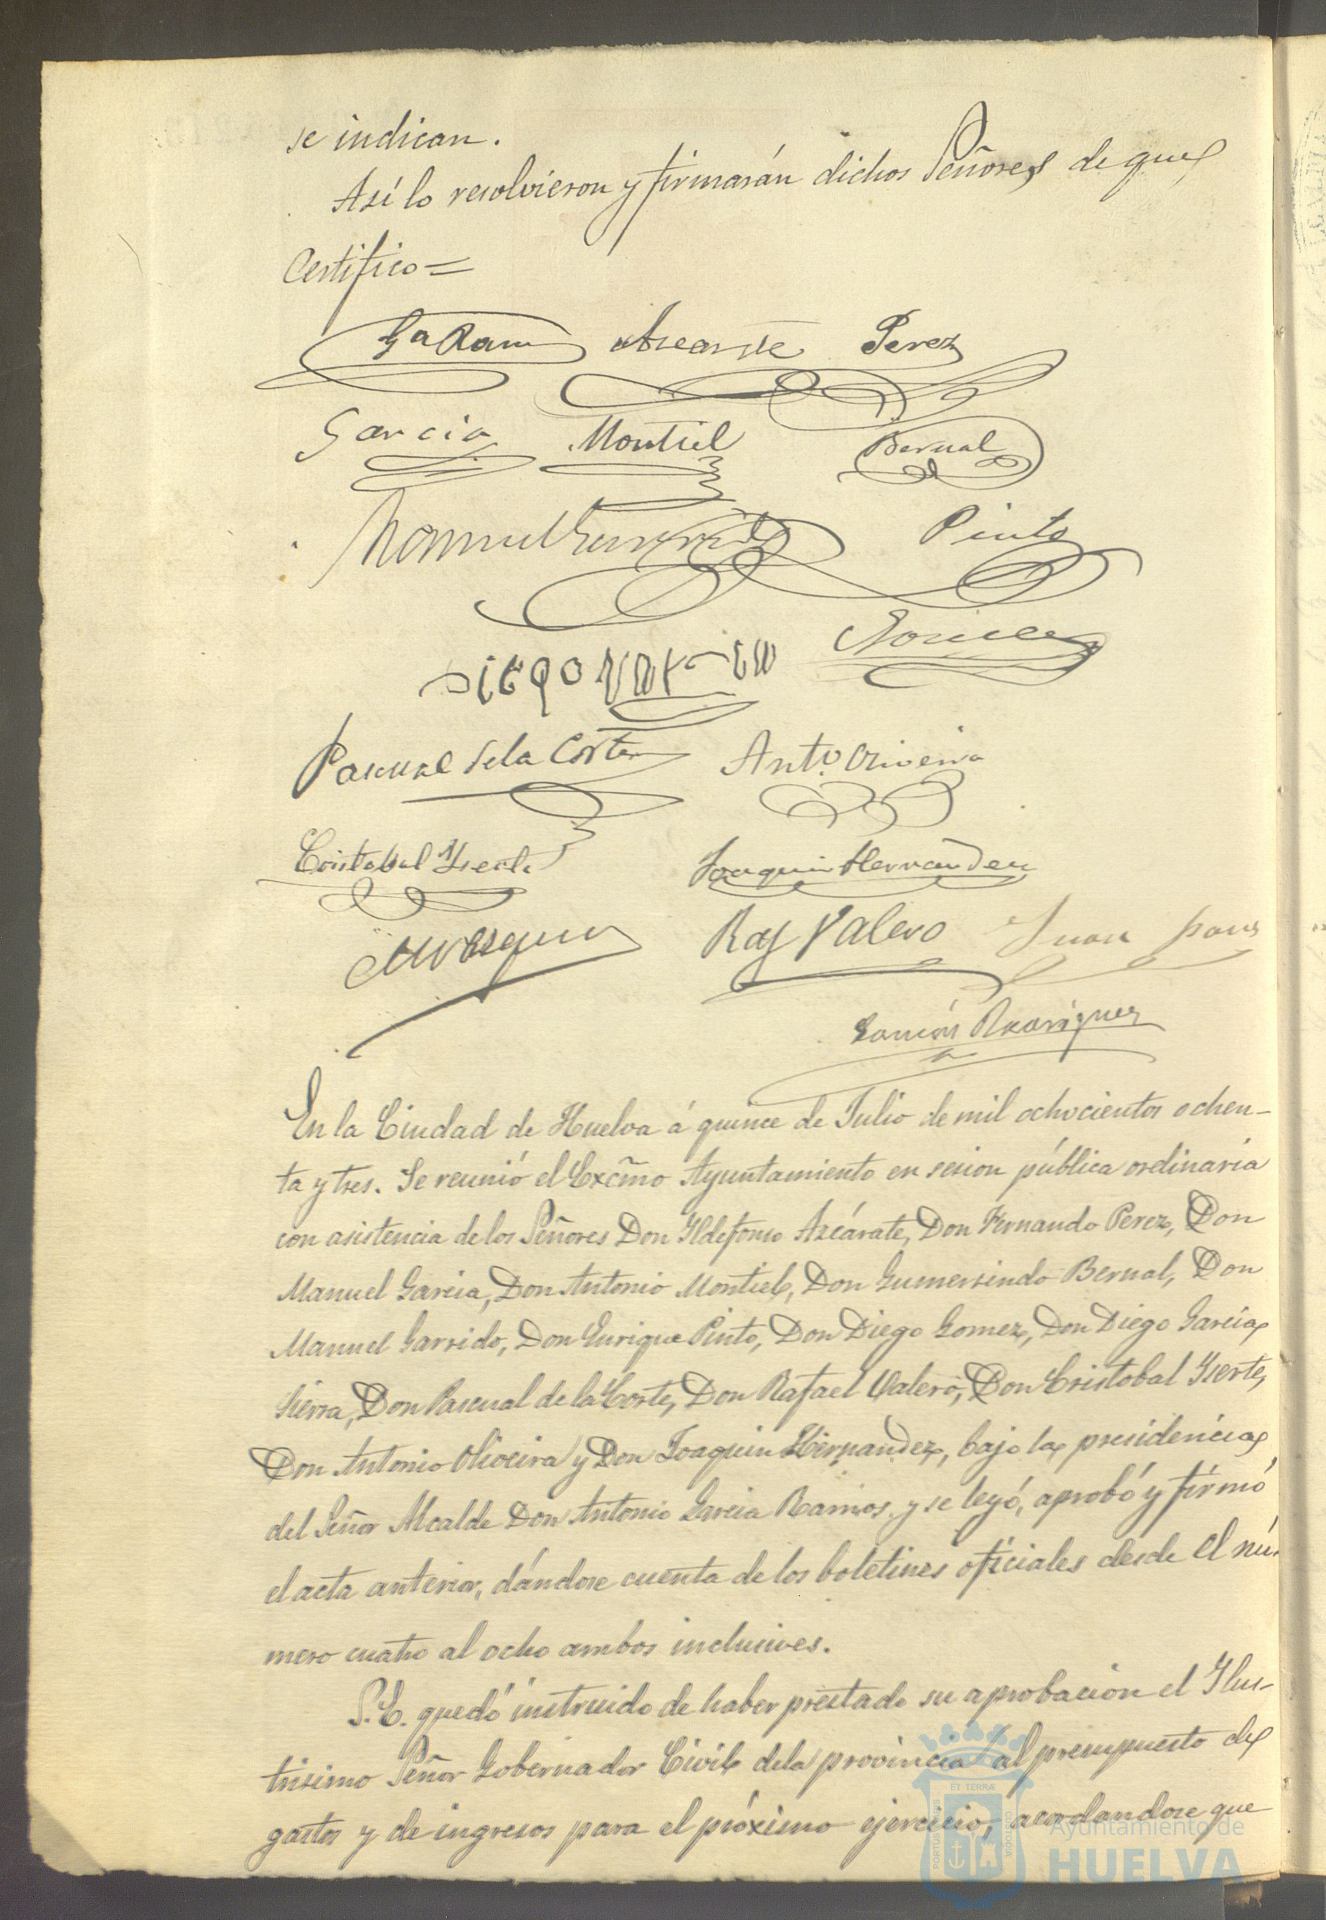 se indican.
Así lo resolvieron y firmarán dichos Señores de que
Certifico=
Ga Ram Azcarate Perez
Garcia Montiel Bernal
Manuel Garrido Pinto
Diego
Gomez
Pascual de la Corte Anto. Oliveira
Cristobal Yserte Joaquin Hernandez
Raf Valero Juan
Ramón Rodriguez
En la Ciudad de Huelva á quince de Julio de mil ochocientos ochen-
ta y tres. Se reunió el Excmo Ayuntamiento en sesion pública ordinaria
con asistencia de los Señores Don Yldefonso Azcárate, Don Fernando Perez, Don
Manuel Garcia, Don Antonio Montiel, Don Gumersindo Bernal, Don
Manuel Garrido, Don Enrique Pinto, Don Diego Gomez, Don Diego Garcia
Sierra, Don Pascual de la Corte, Don Rafael Valero, Don Cristobal Yserte,
Don Antonio Olioeira y Don Joaquin Hernandez, bajo la presidencia
del Señor Alcalde Don Antonio Garcia Ramos, y se leyó, aprobó y firmó
el acta anterior, dándose cuenta de los boletines oficiales desde el nú-
mero cuatro al ocho ambos inclusives.
S.E. quedó instruido de haber prestado su aprobacion el Ylus-
trisimo Señor Gobernador Civil de la provincia al presupuesto de
gastos y de ingresos para el próximo ejercicio, acordandose que
Ayuntamiento de
HUELVA